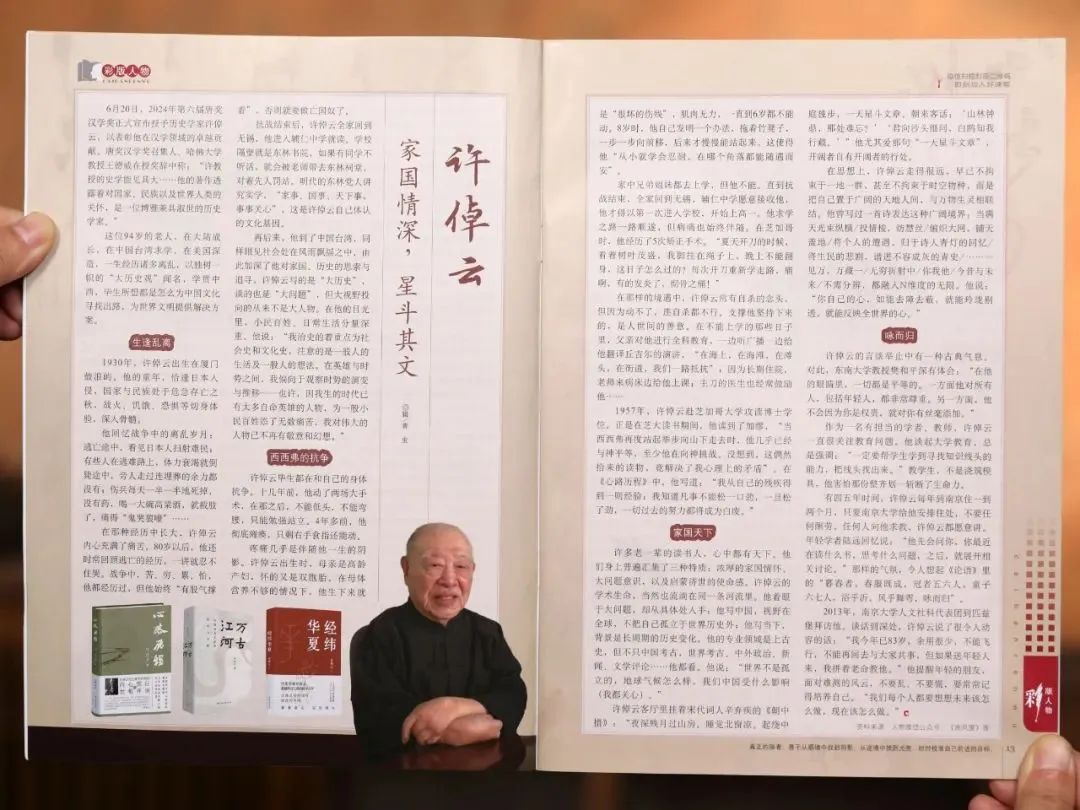 彩版人物
6月20日，2024年第六届唐奖
汉学奖正式宣布授予历史学家许倬
云，以表彰他在汉学领域的卓越贡
献。唐奖汉学奖召集人、哈佛大学
教授王德威在授奖辞中称：“许教
授的史学能见其大……他的著作透
露着对国家、民族以及世界人类的
关怀，是一位博雅兼具淑世的历史
学家。”
这位94岁的老人，在大陆成
长，在中国台湾求学，在美国深
造，一生经历诸多离乱，以独树一
帜的“大历史观”闻名，学贯中
西，毕生所想都是怎么为中国文化
寻找出路，为世界文明提供解决方
案。
生逢乱离
1930年，许倬云出生在厦门
鼓浪屿。他的童年，恰逢日本人侵
国家与民族处于危急存亡之
秋，战火、饥饿、恐惧等切身体
验，深入骨髓。
他回忆战争中的离乱岁月：
逃亡途中，看见日本人扫射难民；
有些人在逃难路上，体力衰竭就倒
毙途中，旁人走过连埋葬的余力都
没有；伤兵每天一半一半地死掉，
没有药，喝一大碗高粱酒，就截肢
了，痛得“鬼哭狼嚎”……
在那种经历中长大，许倬云
内心充满了痛苦，80岁以后，他还
时常回顾逃亡的经历，一讲就忍不
住哭。战争中，苦、穷、累、怕，
他都经历过，但他始终“有股气撑
着”，否则就要做亡国奴了。
抗战结束后，许倬云全家回到
无锡，他进入辅仁中学就读。学校
隔壁就是东林书院，如果有同学不
听话，就会被老师带去东林祠堂，
对着先人罚站。明代的东林党人讲
究实学，“家事、国事、天下事，
事事关心”，这是许倬云自己体认
的文化基因。
再后来，他到了中国台湾，同
样眼见社会处在风雨飘摇之中，由
此加深了他对家国、历史的思索与
追寻。许倬云写的是“大历史”，
谈的也是“大问题”，但大视野投
向的从来不是大人物。在他的目光
里，小民百姓、日常生活分量深
重。他说：“我治史的着重点为社
会史和文化史，注意的是一般人的
生活及一般人的想法。在英雄与时
势之间，我倾向于观察时势的演变
与推移——也许，因我生的时代已
有太多自命英雄的人物，为一般小
民百姓添了无数痛苦，我对伟大的
人物已不再有敬意和幻想。”
西西弗的抗争
许倬云毕生都在和自己的身体
抗争。十几年前，他动了两场大手
术，在那之后，不能低头，不能弯
腰，只能勉强站立。4年多前，他
彻底瘫痪，只剩右手食指还能动。
疼痛几乎是伴随他一生的阴
影。许倬云出生时，母亲是高龄
产妇，怀的又是双胞胎，在母体
营养不够的情况下，他生下来就
许倬云
家国情深，星斗其文
心路历程
万古江河
经纬华夏
是“很坏的伤残”，肌肉无力，一直到6岁都不能
动。8岁时，他自己发明一个办法，拖着竹凳子，
一步一步向前移，后来才慢慢能站起来。这使得
他“从小就学会忍耐，在哪个角落都能随遇而
安”。
家中兄弟姐妹都去上学，但他不能。直到抗
战结束，全家回到无锡，辅仁中学愿意接收他，
他才得以第一次进入学校，开始上高一。他求学
之路一路顺遂，但病痛也始终伴随。在芝加哥
时，他经历了5次矫正手术。“夏天开刀的时候，
看着树叶茂盛，我脚挂在绳子上，晚上不能翻
身，这日子怎么过的？每次开刀重新学走路，痛
啊，有的发炎了，彻骨之痛！”
在那样的境遇中，许倬云常有自杀的念头，
但因为动不了，连自杀都不行。支撑他坚持下来
的，是人世间的善意。在不能上学的那些日子
里，父亲对他进行全科教育，一边听广播一边给
他翻译丘吉尔的演讲，“在海上，在海滩，在滩
头，在街道，我们一路抵抗”；因为长期住院，
老师来病床边给他上课；主刀的医生也经常鼓励
他……
1957年，许倬云赴芝加哥大学攻读博士学
位。正是在芝大读书期间，他读到了加缪，“当
西西弗再度站起举步向山下走去时，他几乎已经
与神平等，至少他在向神挑战。没想到，这偶然
拾来的读物，竟解决了我心理上的矛盾”。在
《心路历程》中，他写道：“我从自己的残疾得
到一则经验：我知道凡事不能松一口劲，一旦松
了劲，一切过去的努力都将成为白废。”
家国天下
许多老一辈的读书人，心中都有天下。他
们身上普遍汇集了三种特质：浓厚的家国情怀、
大问题意识，以及启蒙济世的使命感。许倬云的
学术生命，当然也流淌在同一条河流里。他着眼
于大问题，却从具体处入手，他写中国，视野在
全球，不把自己孤立于世界历史外；他写当下，
背景是长周期的历史变化。他的专业领域是上古
史，但不只中国考古，世界考古、中外政治、新
闻、文学评论……他都看。他说：“世界不是孤
立的，地球气候怎么样，我们中国受什么影响
（我都关心）。”
许倬云客厅里挂着宋代词人辛弃疾的《朝中
措》：“夜深残月过山房，睡觉北窗凉。起绕中
庭独步，一天星斗文章。朝来客话，‘山林钟
鼎，那处难忘？’‘君向沙头细问，白鸥知我
行藏。’”他尤其爱那句“一天星斗文章”，
开阔者自有开阔者的行处。
在思想上，许倬云走得很远，早已不拘
束于一地一群，甚至不拘束于时空物种，而是
把自己置于广阔的天地人间，与万物生灵相联
结。他曾写过一首诗表达这种广阔境界：当满
天光束纵横/投情梭，纺慧丝/编织大网，铺天
盖地/将个人的遭遇，归于诗人青灯的回忆/
将生民的悲剧，谱进不容成灰的青史/……
见万，万藏一/无穷折射中/你我他/今昔与未
来/不需分辨，都融入N维度的无限。他说：
“你自己的心，如能去障去蔽，就能玲珑剔
透，就能反映全世界的心。”
咏而归
许倬云的言谈举止中有一种古典气息。
对此，东南大学教授樊和平深有体会：“在他
的眼睛里，一切都是平等的。一方面他对所有
人，包括年轻人，都非常尊重。另一方面，他
不会因为你是权贵，就对你有丝毫添加。”
作为一名有担当的学者、教师，许倬云
一直很关注教育问题。他谈起大学教育，总
是强调：“一定要帮学生学到寻找知识线头的
能力，把线头找出来。”教学生，不是浇筑模
具，他害怕那份整齐划一斩断了生命力。
有四五年时间，许倬云每年到南京住一到
两个月，只要南京大学给他安排住处，不要任
何酬劳，任何人向他求教，许倬云都愿意讲。
年轻学者陆远回忆说：“他先会问你，你最近
在读什么书，思考什么问题，之后，就展开相
关讨论。”那样的气氛，令人想起《论语》里
的“暮春者，春服既成，冠者五六人，童子
六七人，浴乎沂，风乎舞雩，咏而归”。
2013年，南京大学人文社科代表团到匹兹
堡拜访他。谈话到深处，许倬云说了很令人动
容的话：“我今年已83岁，余用很少，不能飞
行，不能再回去与大家共事，但如果送年轻人
来，我拼着老命教他。”他提醒年轻的朋友，
面对难测的风云，不要乱，不要慌，要常常记
得培养自己。“我们每个人都要想想未来该怎
么做，现在该怎么做。”
彩版人物
真正的强者，善于从顺境中找到阴影，从逆境中找到光亮，时时校准自己前进的目标。
13